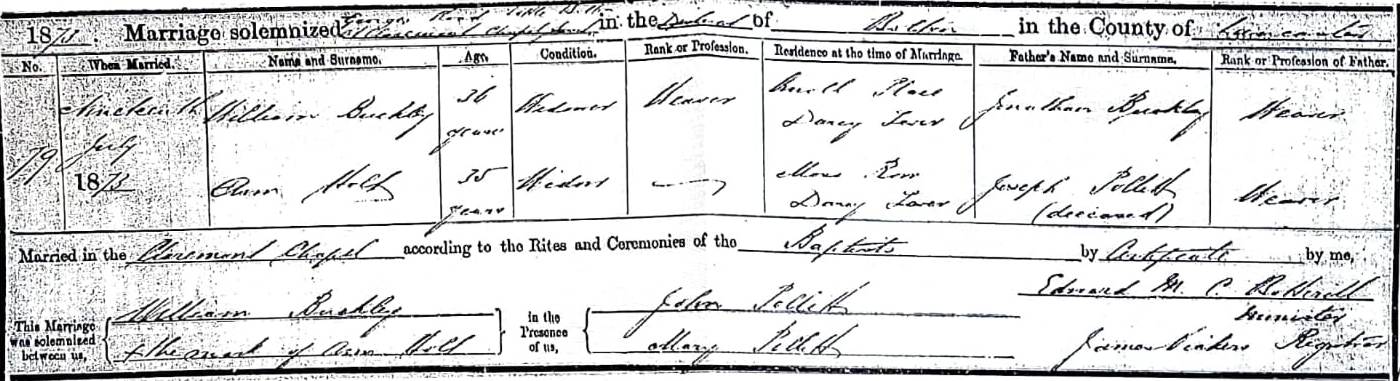 1873. Marriage solemnized at Claremont Chapel in the District of Bolton in the County of Lancaster
No. When Married. Name and Surname. Age. Condition. Rank or Profession. Residence at the time of Marriage. Father's Name and Surname. Rank or Profession of Father.
79 Nineteenth July 1873 William Buckley 36 years Widower Weaver Place Darcy Lever Jonathan Buckley Weaver
Ann Holt 35 years Widow — Moss Row Darcy Lever Joseph Pollitt (deceased) Weaver
Married in the Claremont Chapel according to the Rites and Ceremonies of the Baptists by Certificate by me,
Edward M. C. Botterell
Minister
This Marriage was solemnized between us, William Buckley
X the mark of Ann Holt
in the Presence of us, John Pollitt
Mary Pollitt
James Vickers Registrar